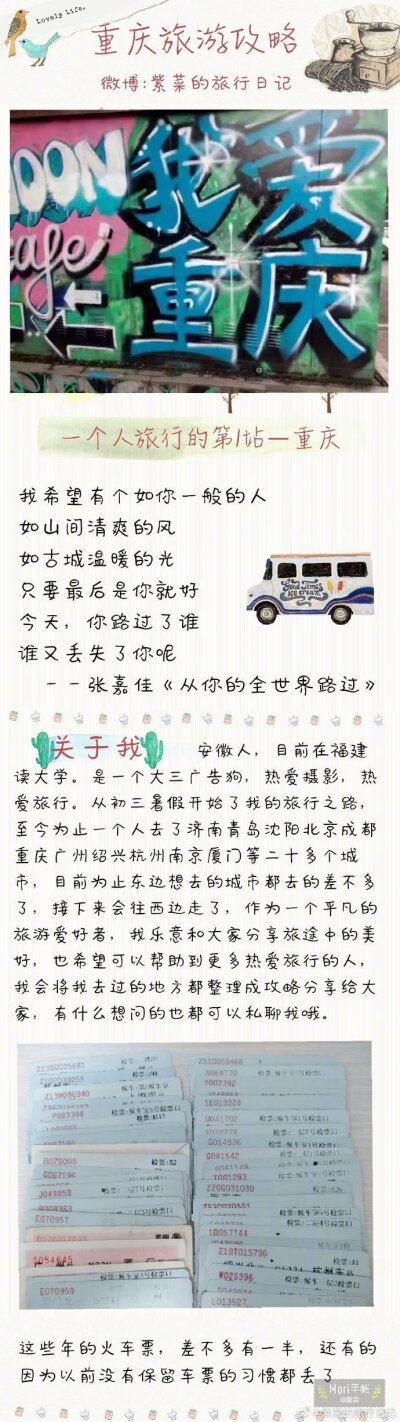 Lovely Life.
重庆旅游攻略
微博:紫菜的旅行日记
OON 我爱
afe 重庆
一个人旅行的第1站—重庆
我希望有个如你一般的人
如山间清爽的风
如古城温暖的光
只要最后是你就好
今天，你路过了谁
谁又丢失了你呢
--张嘉佳《从你的全世界路过》
Good Times
ice cream
关于我 安徽人，目前在福建
读大学。是一个大三广告狗，热爱摄影，热
爱旅行。从初三暑假开始了我的旅行之路，
至今为止一个人去了济南青岛沈阳北京成都
重庆广州绍兴杭州南京厦门等二十多个城
市，目前为止东边想去的城市都去的差不多
了，接下来会往西边走了，作为一个平凡的
旅游爱好者，我乐意和大家分享旅途中的美
好，也希望可以帮助到更多热爱旅行的人，
我会将我去过的地方都整理成攻略分享给大
家，有什么想问的也都可以私聊我哦。
Z51G059468
N069770
Y002392
1E019228
U041702
G014936
Q081542
Z20G031030
1D057744
Z19T015796
W025396
L013527
P982394
B079008 检票:B2
J049859
E070957
S054645
E070959
这些年的火车票，差不多有一半，还有的
因为以前没有保留车票的习惯都丢了
Mori手帐
@紫菜